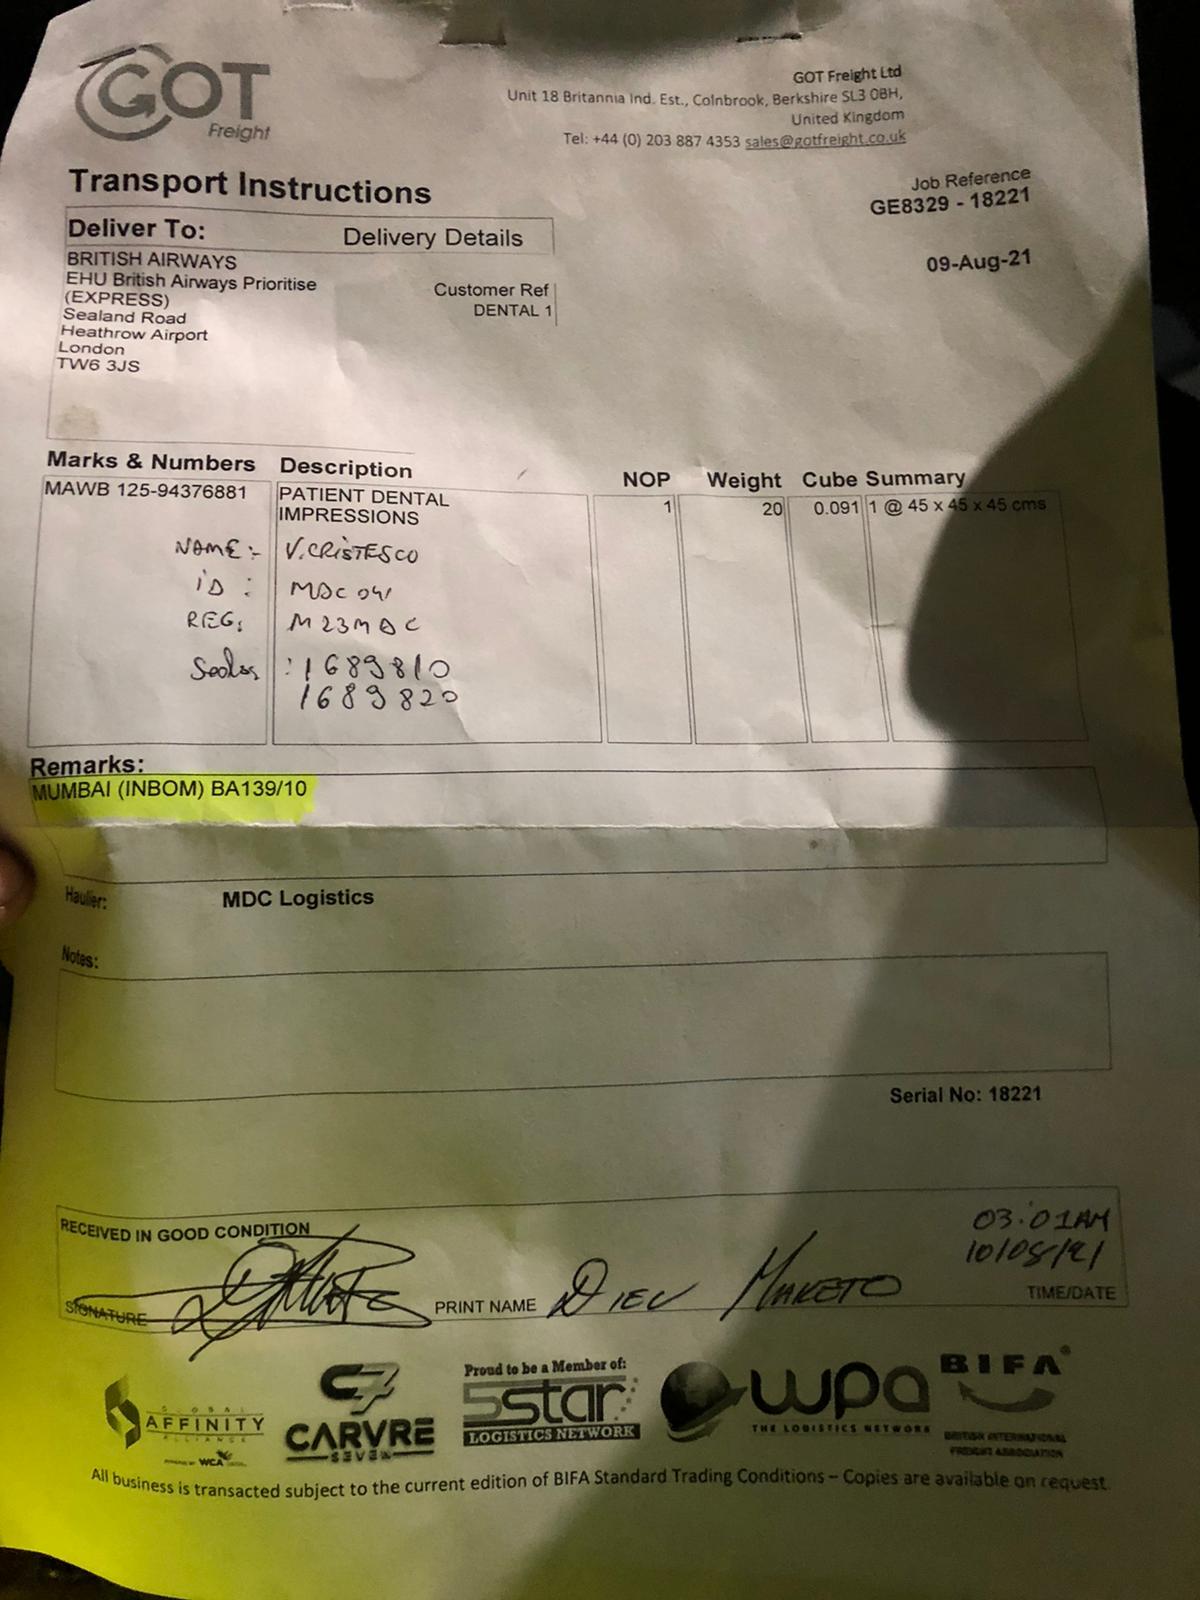 GOT
Freight
GOT Freight Ltd
Unit 18 Britannia Ind. Est., Colnbrook, Berkshire SL3 0BH,
United Kingdom
Tel: +44 (0) 203 887 4353 sales@gotfreight.co.uk
Transport Instructions
Job Reference
GE8329 - 18221
09-Aug-21
Deliver To: Delivery Details
BRITISH AIRWAYS
EHU British Airways Prioritise
(EXPRESS)
Sealand Road
Heathrow Airport
London
TW6 3JS
Customer Ref
DENTAL 1
Marks & Numbers Description NOP Weight Cube Summary
MAWB 125-94376881 PATIENT DENTAL 1 20 0.091 1 @ 45 x 45 x 45 cms
IMPRESSIONS
NAME:- V.CRISTESCO
ID : MDC 041
REG: M23MDC
Seals :1689810
1689820
Remarks:
MUMBAI (INBOM) BA139/10
Haulier: MDC Logistics
Notes:
Serial No: 18221
RECEIVED IN GOOD CONDITION
03:01AM
10/08/21
SIGNATURE PRINT NAME MAKETO TIME/DATE
GLOBAL
AFFINITY
ALLIANCE
POWERED BY WCA
C7
CARVRE
SEVEN
Proud to be a Member of:
5star
LOGISTICS NETWORK
wpa
THE LOGISTICS NETWORK
BIFA®
BRITISH INTERNATIONAL
FREIGHT ASSOCIATION
All business is transacted subject to the current edition of BIFA Standard Trading Conditions – Copies are available on request.